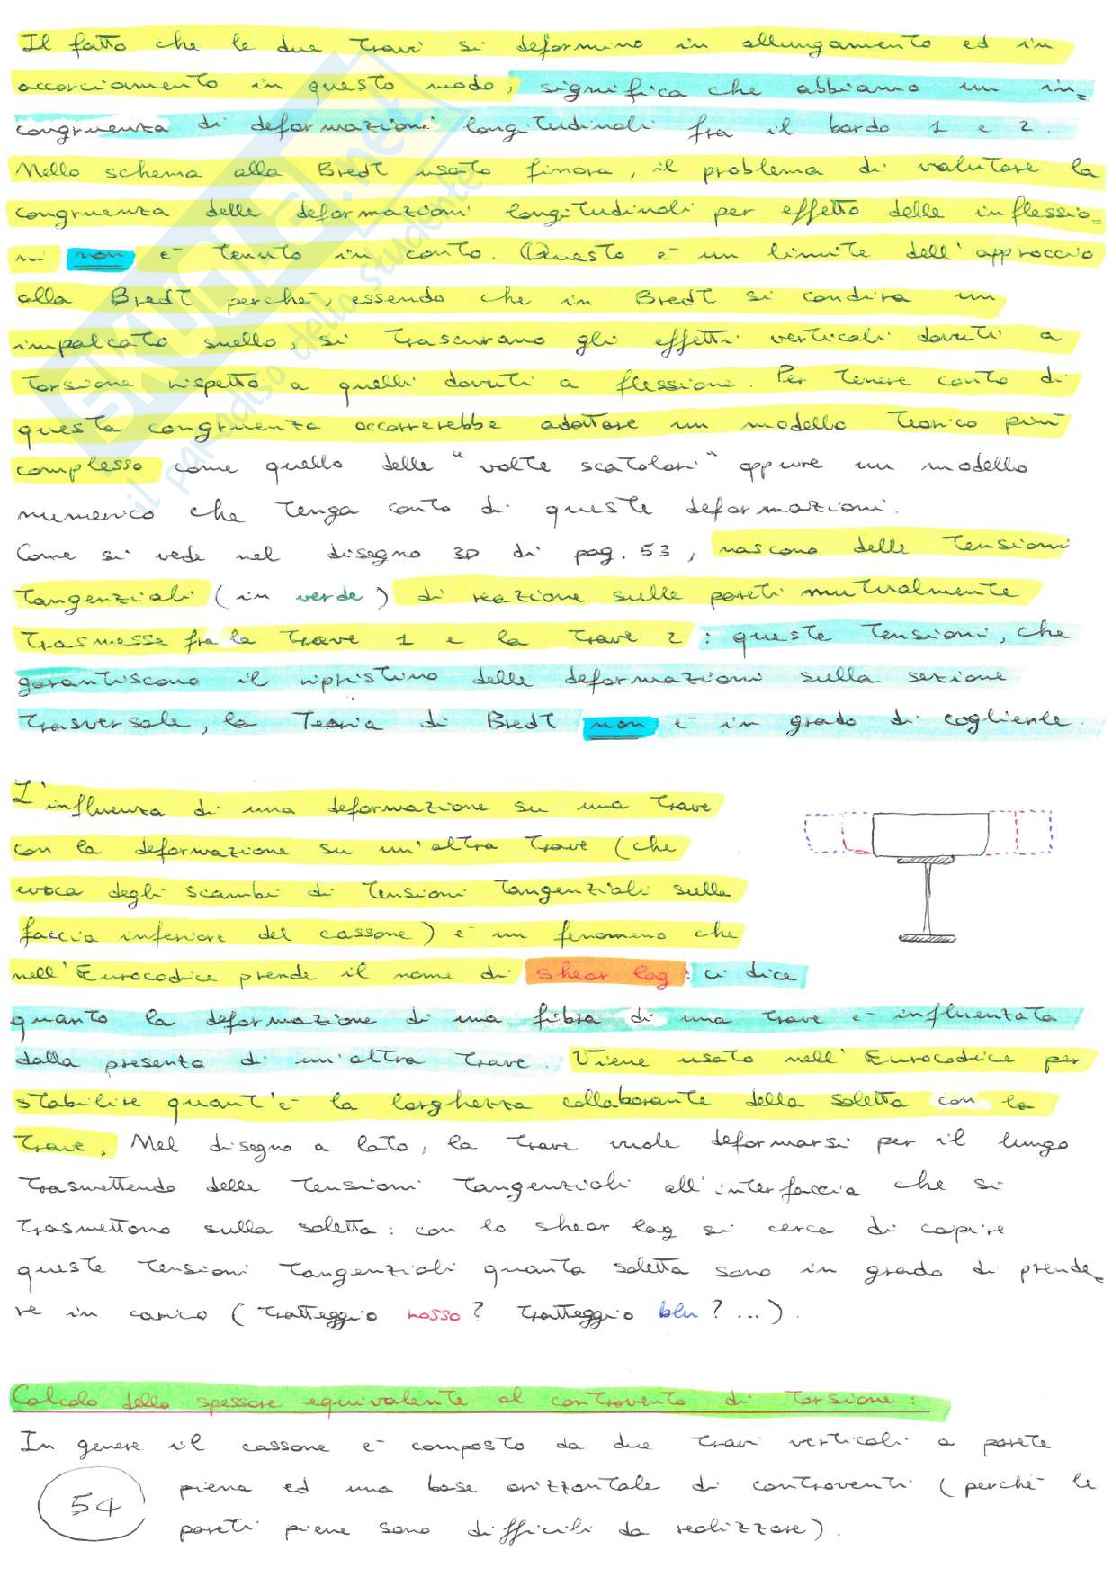 Il fatto che le due travi si deformino in allungamento ed in
accorciamento in questo modo, significa che abbiamo un in=
congruenza di deformazioni longitudinali fra il bordo 1 e 2.
Nello schema alla Bredt usato finora, il problema di valutare la
congruenza delle deformazioni longitudinali per effetto delle inflessio=
ni non è tenuto in conto. Questo è un limite dell'approccio
alla Bredt perché, essendo che in Bredt si considera un
impalcato snello, si trascurano gli effetti verticali dovuti a
torsione rispetto a quelli dovuti a flessione. Per tenere conto di
questa congruenza occorrerebbe adottare un modello teorico più
complesso come quello delle "volte scatolari" oppure un modello
numerico che tenga conto di queste deformazioni.
Come si vede nel disegno 3D di pag. 53, nascono delle tensioni
tangenziali (in verde) di reazione sulle pareti mutualmente
trasmesse fra la trave 1 e la trave 2: queste tensioni, che
garantiscono il ripristino delle deformazioni sulla sezione
trasversale, la Teoria di Bredt non è in grado di coglierle.
L'influenza di una deformazione su una trave
con la deformazione su un'altra trave (che
evoca degli scambi di tensioni tangenziali sulla
faccia inferiore del cassone) è un fenomeno che
nell'Eurocodice prende il nome di shear lag: ci dice
quanto la deformazione di una fibra di una trave è influenzata
dalla presenza di un'altra trave. Viene usato nell'Eurocodice per
stabilire quant'è la larghezza collaborante della soletta con la
trave. Nel disegno a lato, la trave vuole deformarsi per il lungo
trasmettendo delle tensioni tangenziali all'interfaccia che si
trasmettono sulla soletta: con lo shear lag si cerca di capire
queste tensioni tangenziali quanta soletta sono in grado di prende=
re in carico (tratteggio rosso? tratteggio blu? ...).
Calcolo dello spessore equivalente al controvento di torsione:
In genere il cassone è composto da due travi verticali a parete
piena ed una base orizzontale di controventi (perché le
pareti piene sono difficili da realizzare).
54
SKUOLA.net
il paradiso dello studente